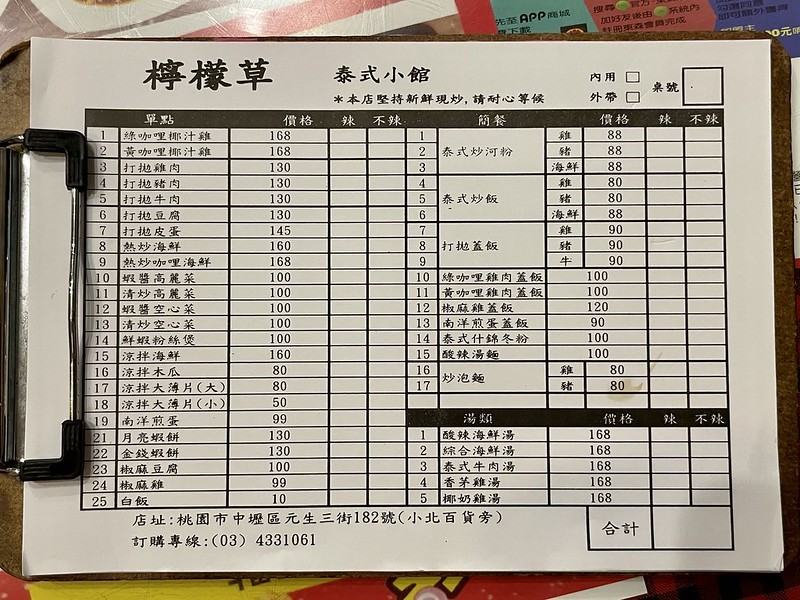 先至APP商城
搜尋 官方
加好友後由 系統內
註冊來森會員完成
檸檬草 泰式小館
*本店堅持新鮮現炒,請耐心等候
內用 □
外帶 □
桌號
單點 價格 辣 不辣
1 綠咖哩椰汁雞 168
2 黃咖哩椰汁雞 168
3 打拋雞肉 130
4 打拋豬肉 130
5 打拋牛肉 130
6 打拋豆腐 130
7 打拋皮蛋 145
8 熱炒海鮮 160
9 熱炒咖哩海鮮 168
10 蝦醬高麗菜 100
11 清炒高麗菜 100
12 蝦醬空心菜 100
13 清炒空心菜 100
14 鮮蝦粉絲煲 100
15 涼拌海鮮 160
16 涼拌木瓜 80
17 涼拌大薄片(大) 80
18 涼拌大薄片(小) 50
19 南洋煎蛋 99
21 月亮蝦餅 130
22 金錢蝦餅 130
23 椒麻豆腐 100
24 椒麻雞 99
25 白飯 10
簡餐 價格 辣 不辣
泰式炒河粉
1 雞 88
2 豬 88
3 海鮮 88
泰式炒飯
4 雞 80
5 豬 80
6 海鮮 88
打拋蓋飯
7 雞 90
8 豬 90
9 牛 90
10 綠咖哩雞肉蓋飯 100
11 黃咖哩雞肉蓋飯 100
12 椒麻雞蓋飯 120
13 南洋煎蛋蓋飯 90
14 泰式什錦冬粉 100
15 酸辣湯麵 100
炒泡麵
16 雞 80
17 豬 80
湯類 價格 辣 不辣
1 酸辣海鮮湯 168
2 綜合海鮮湯 168
3 泰式牛肉湯 168
4 香茅雞湯 168
5 椰奶雞湯 168
店址:桃園市中壢區元生三街182號(小北百貨旁)
訂購專線:(03) 4331061
合計